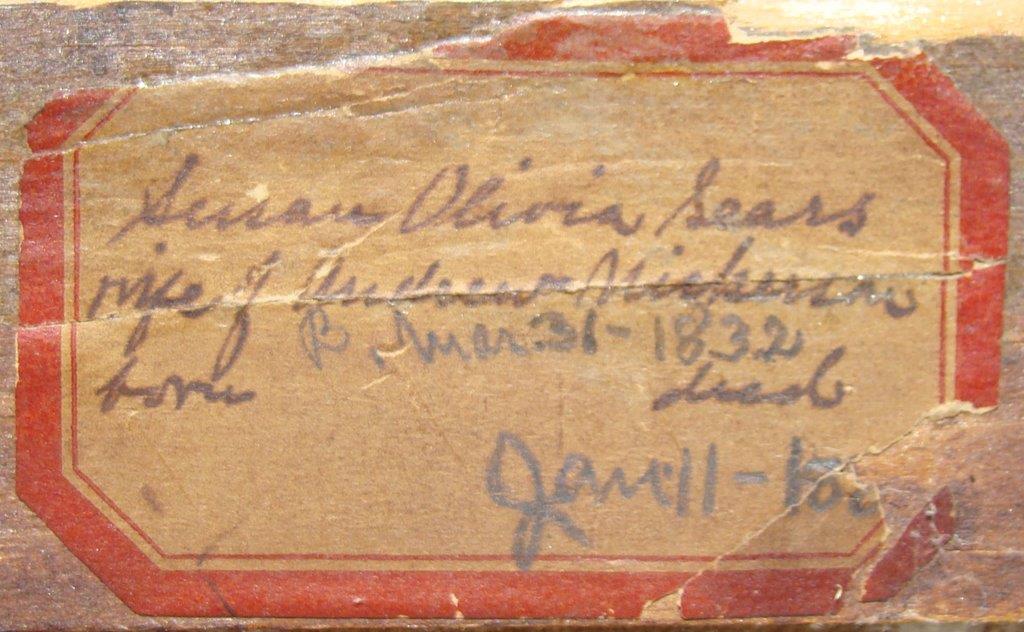 Susan Olivia Sears
wife of Andrew Nickerson
B. Mar. 31 - 1832
born died
Jan 11 -